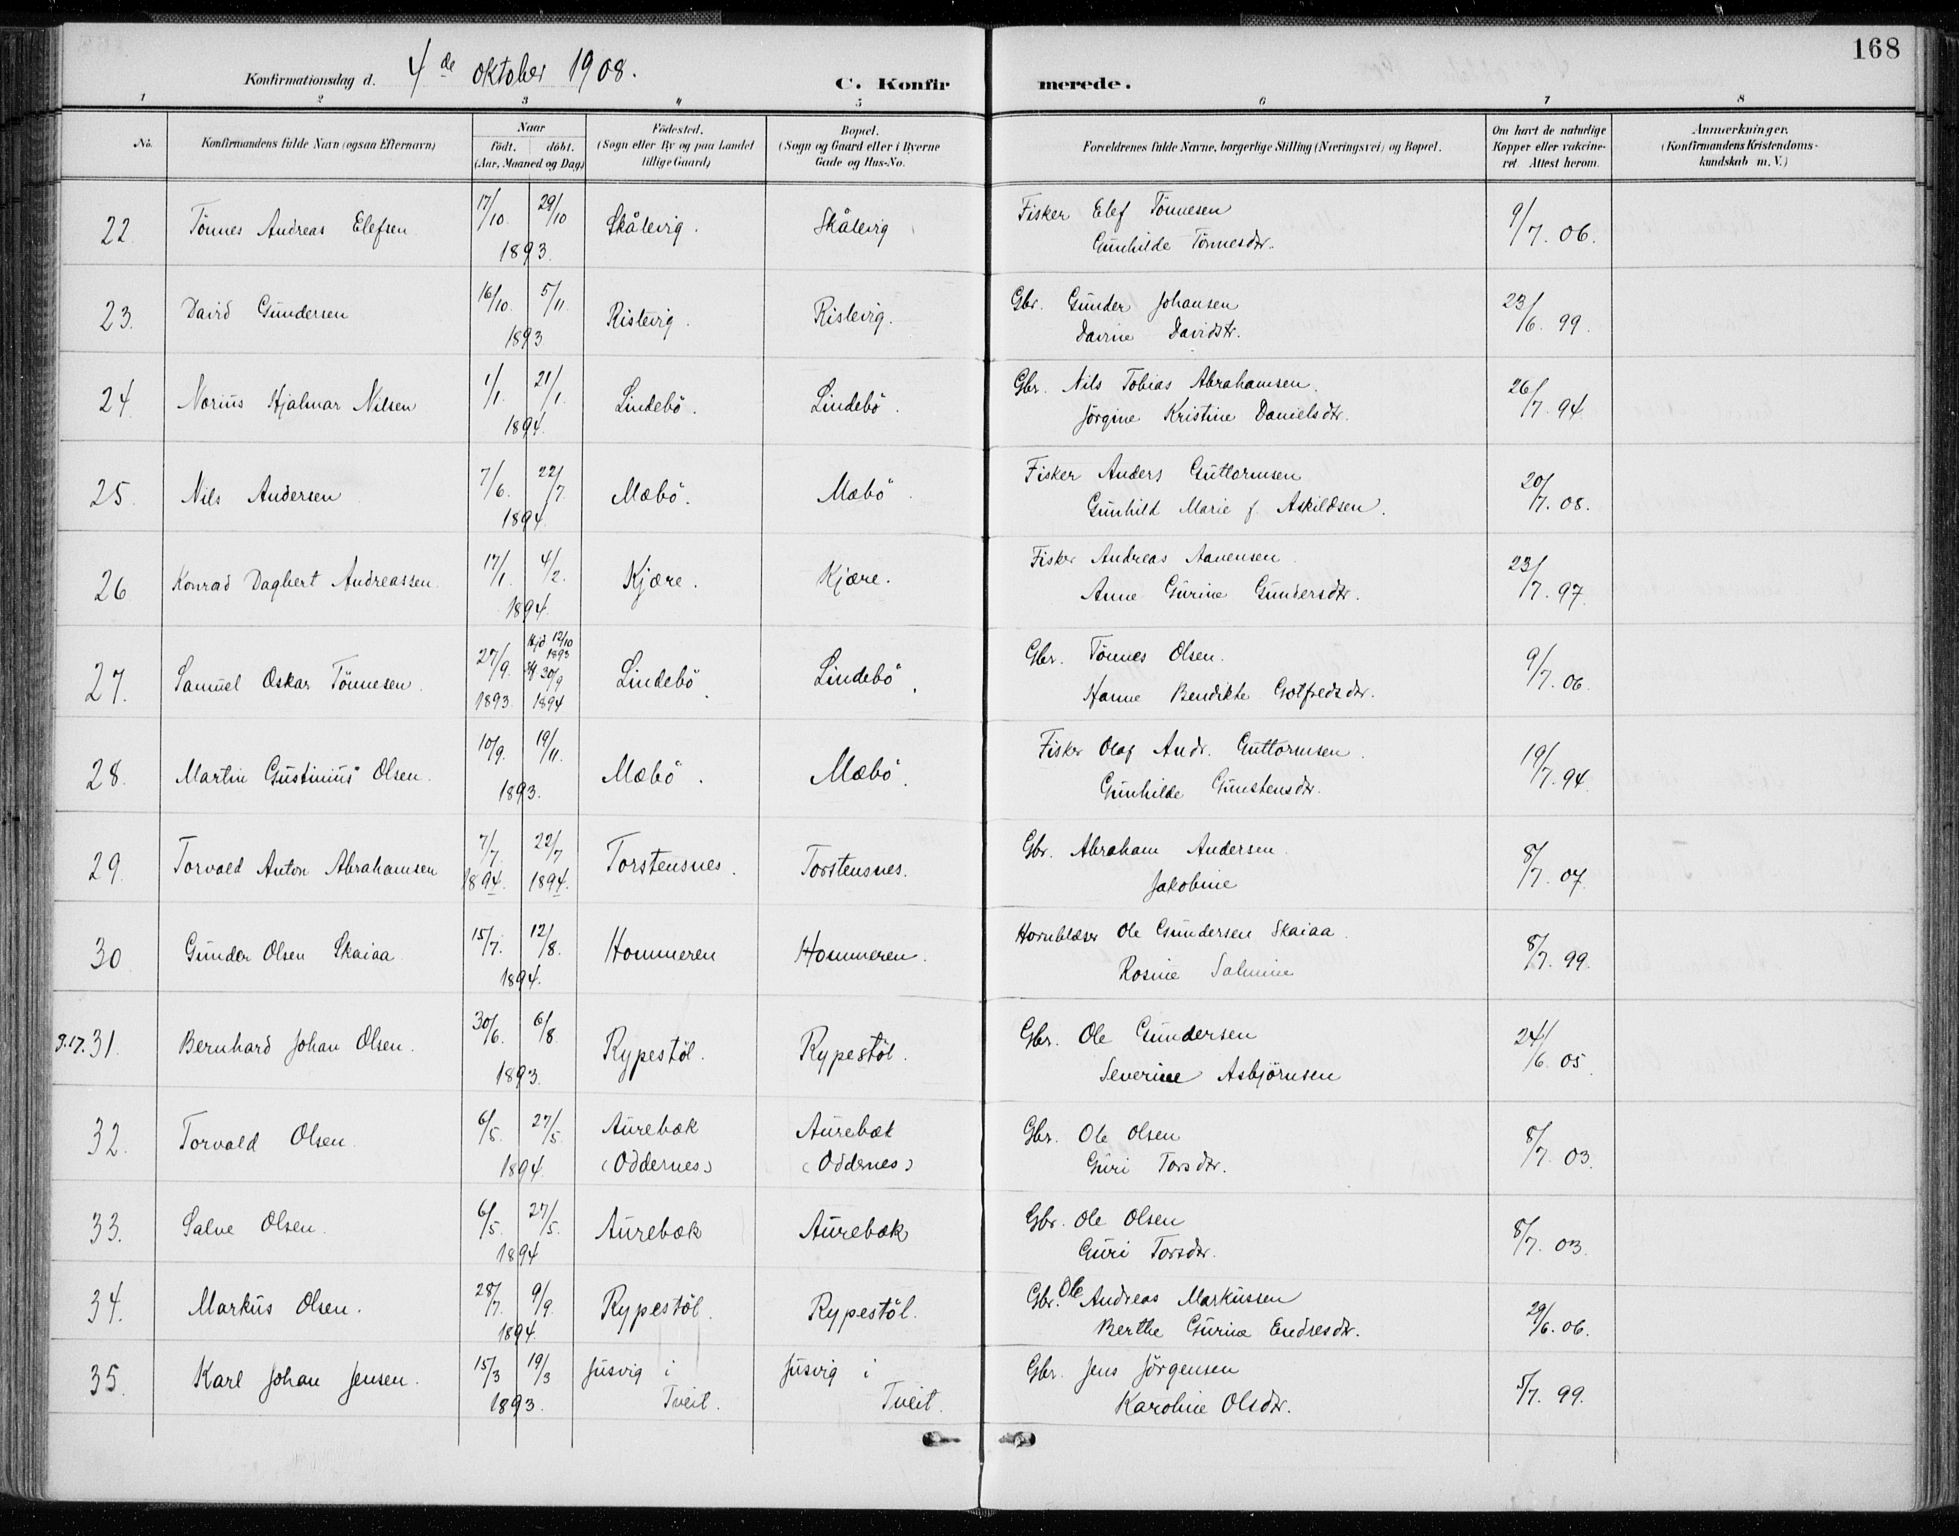 168
Konfirmationsdag d. 4de oktober 1908.
C. Konfirmerede.
1 2 3 4 5 6 7 8
No.
Konfirmandens fulde Navn (ogsaa Efternavn)
Naar
födt. döbt.
(Aar, Maaned og Dag)
Födested.
(Sogn eller By og paa Landet
tillige Gaard)
Bopæl.
(Sogn og Gaard eller i Byerne
Gade og Hus-No.
Forældrenes fulde Navne, borgerlige Stilling (Næringsvei) og Bopæl.
Om havt de naturlige
Kopper eller vakcine-
ret. Attest herom.
Anmærkninger.
(Konfirmandens Kristendoms-
kundskab m. V.)
22. Tönnes Andreas Elefsen 17/10. 29/10 1893. Skålevig. Skålevig Fisker Elef Tönnesen 9/7. 06.
Gunhilde Tönnesdtr.
23. David Gundersen 16/10. 5/11 1893 Ristevig. Ristevig. Gbr. Gunder Johansen 23/6. 99.
Davine Davidsdtr.
24. Norius Hjalmar Nilsen 1/1. 21/1. 1894. Lindebö. Lindebö. Gbr. Nils Tobias Abrahamsen. 26/7. 94.
Jörgine Kristine Danielsdtr.
25. Nils Andersen 7/6. 22/7. 1894. Mæbö. Mæbö. Fisker Anders Guttormsen 20/7. 08.
Gunhild Marie f. Askildsen.
26 Konrad Dagbert Andreassen. 17/1. 4/2. 1894. Kjære. Kjære. Fisker Andreas Aanensen 23/7. 97.
Anne Gurine Gundersdtr.
27. Samuel Oskar Tönnesen. 27/9. 1893. Hjd 12/10 1893 30/9 1894 Lindebö. Lindebö. Gbr. Tönnes Olsen. 9/7. 06.
Hanne Bendikte Gotfredsdtr.
28. Martin Gustinius Olsen. 10/9. 19/11. 1893. Mæbö. Mæbö. Fisker Olaf Andr. Guttormsen. 19/7. 94.
Gunhilde Gunstensdtr.
29. Torvald Anton Abrahamsen 7/7. 1894. 22/7 1894. Torstensnes. Torstensnes. Gbr. Abraham Andersen. 8/7. 07.
Jakobine
30 Gunder Olsen Skaiaa 15/7. 12/8. 1894. Hommeren Hommeren. Hornblæser Ole Gundersen Skaiaa. 8/7. 99.
Rosine Salmine
9.17. 31. Bernhard Johan Olsen. 30/6. 6/8. 1893. Rypestöl. Rypestöl. Gbr. Ole Gundersen 24/6 05.
Severine Asbjörnsen
32. Torvald Olsen 6/5. 27/5. 1894. Aurebæk Aurebæk Gbr. Ole Olsen 8/7. 03.
(Oddernes) (Oddernes) Guri Torsdtr.
33. Salve Olsen. 6/5. 27/5. 1894 Aurebæk Aurebæk Gbr. Ole Olsen 8/7. 03.
Guri Torsdtr.
34. Markus Olsen. 28/7. 9/9. 1894. Rypestöl. Rypestöl. Gbr. Ole Andreas Markussen 29/6. 06.
Berthe Gurine Endresdtr.
35. Karl Johan Jensen. 15/3 19/3 1893. Jusvig i Jusvig i Gbr. Jens Jörgensen 5/7. 99.
Tveit. Tveit. Karoline Olsdtr.